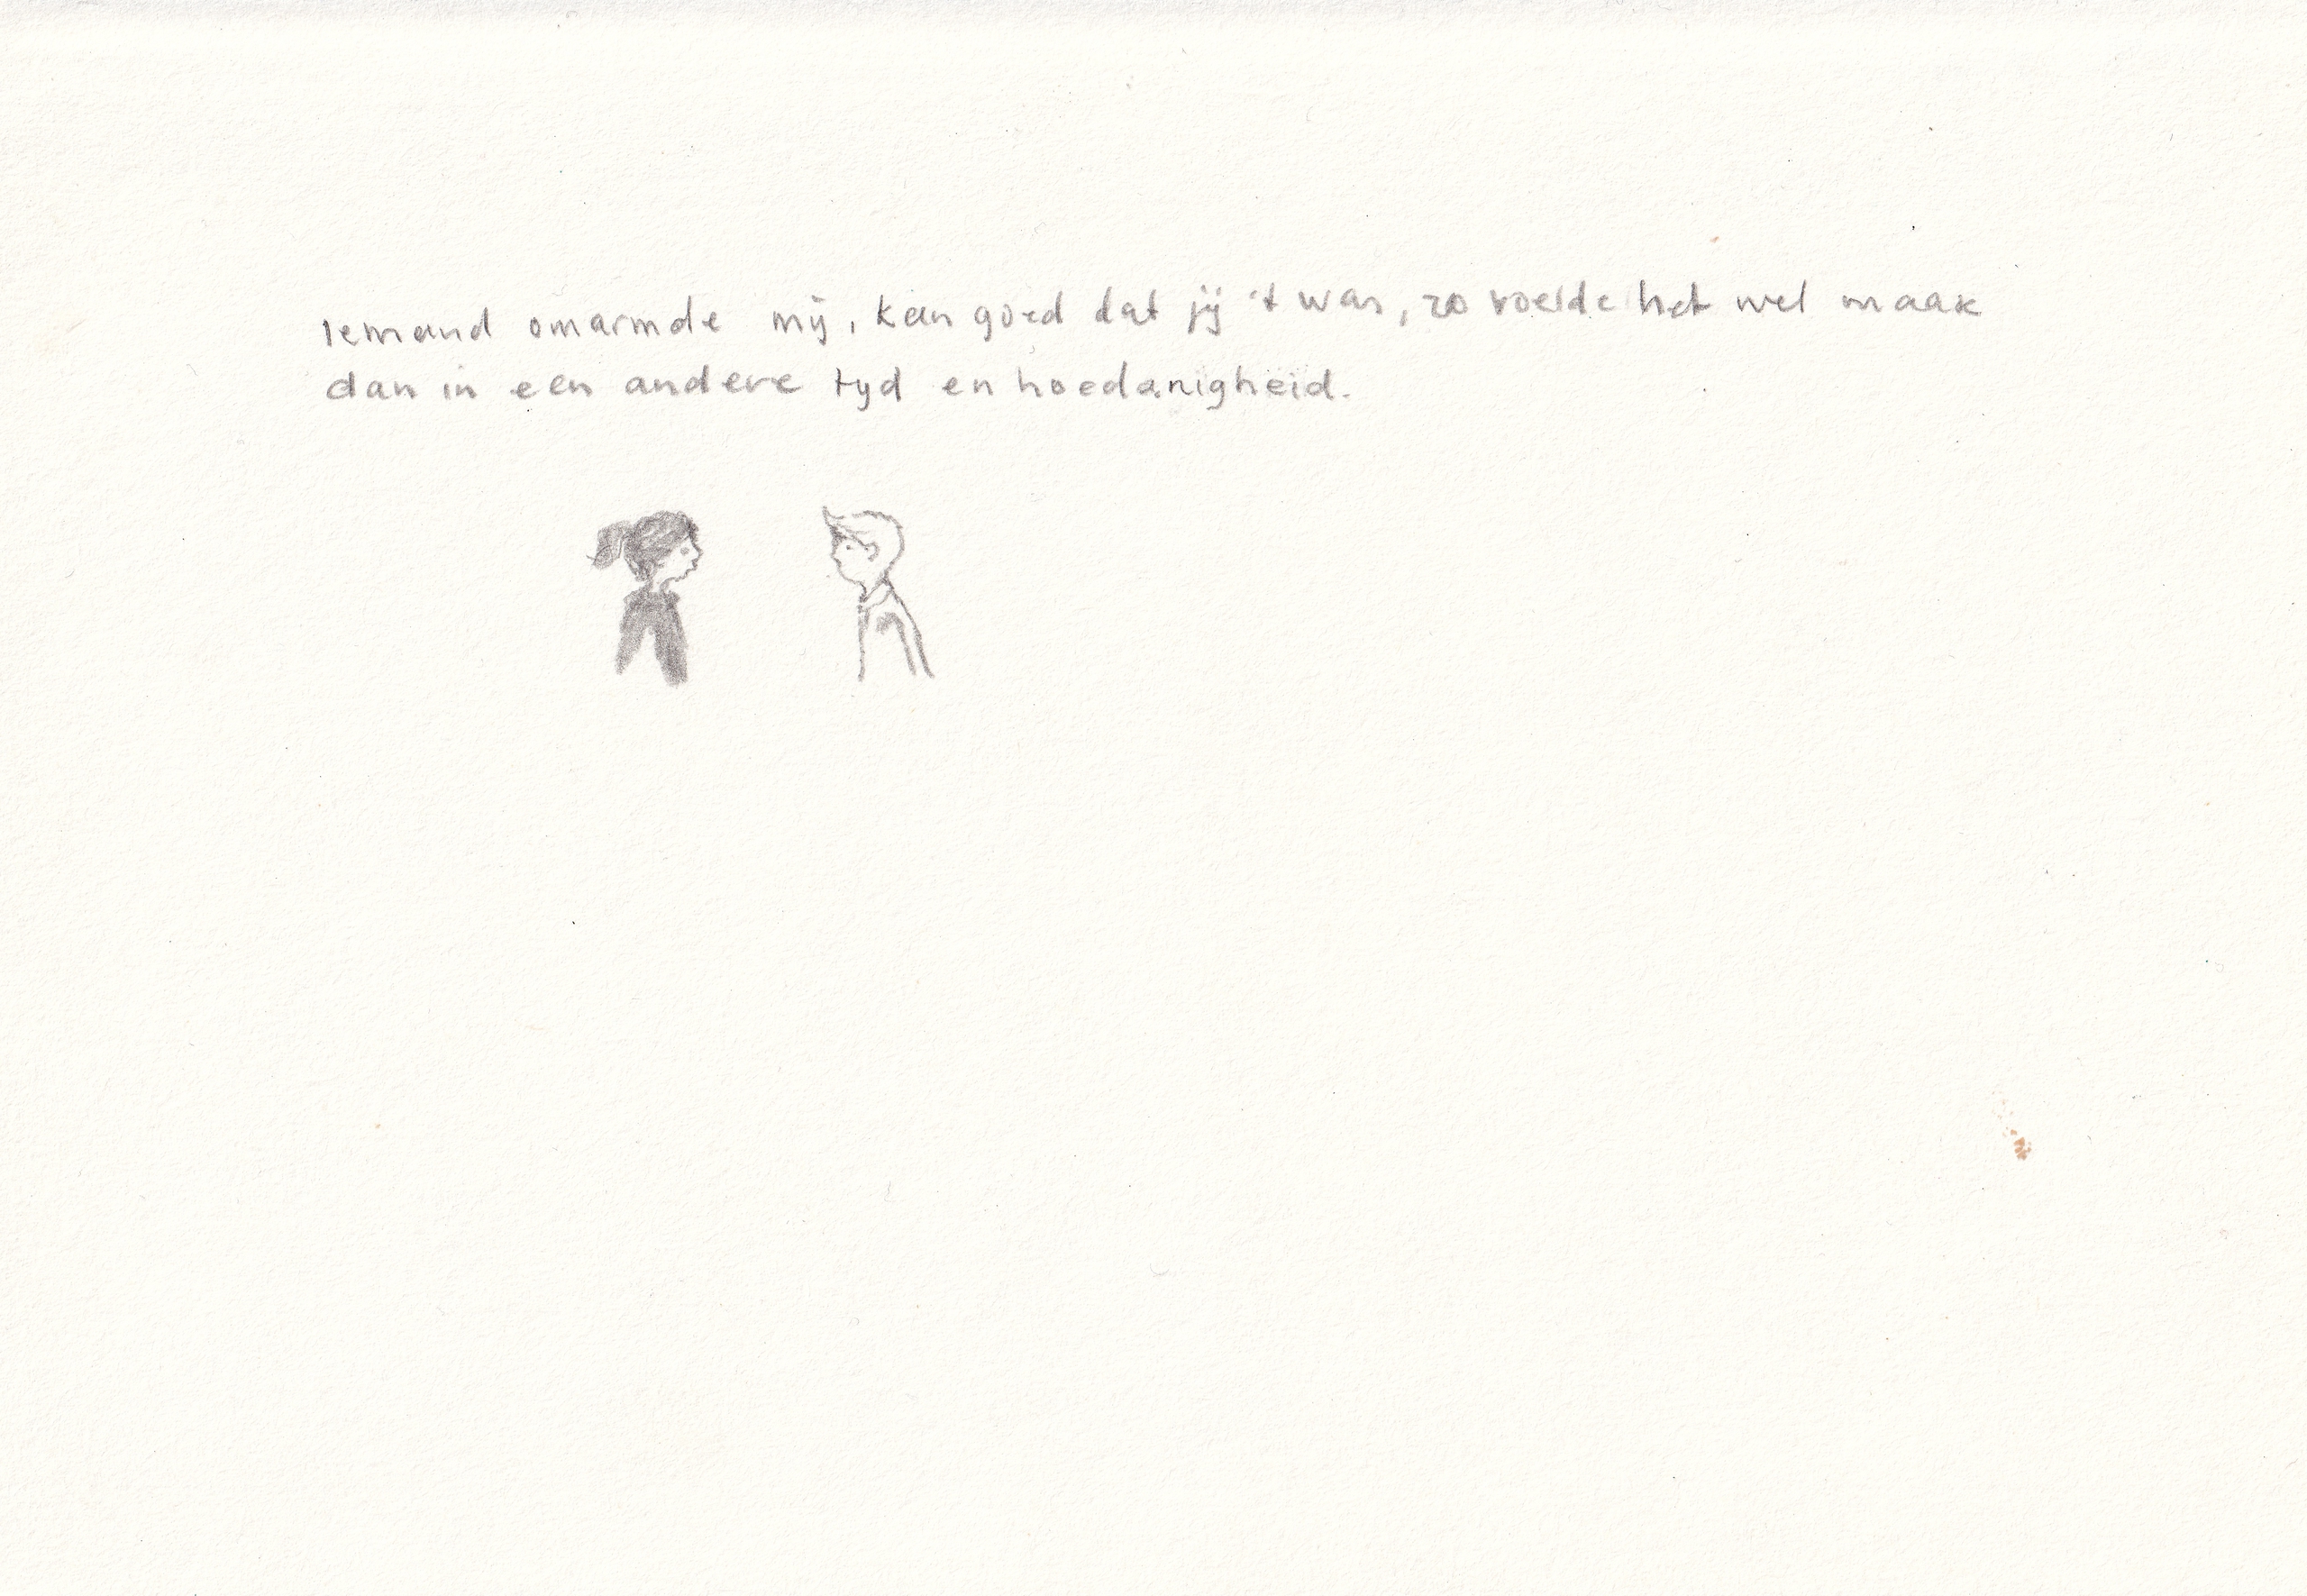 Iemand omarmde mij, kan goed dat jij 't was, zo voelde het wel maar
dan in een andere tyd en hoedanigheid.